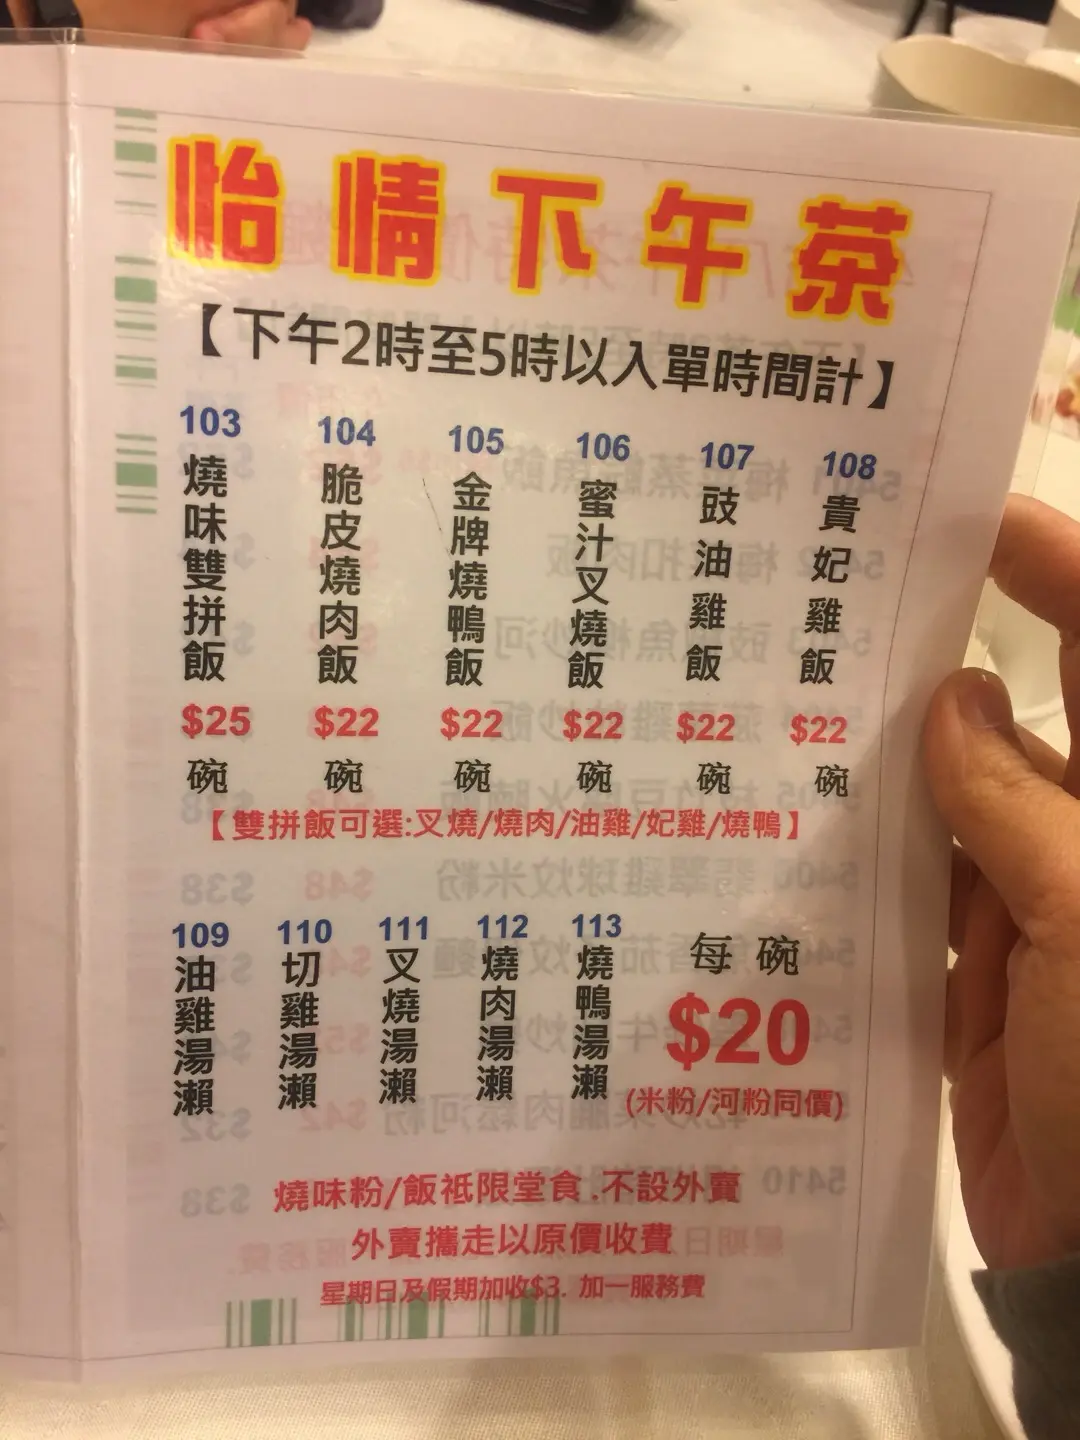 怡情下午茶
【下午2時至5時以入單時間計】
103 燒味雙拼飯 $25 碗
104 脆皮燒肉飯 $22 碗
105 金牌燒鴨飯 $22 碗
106 蜜汁叉燒飯 $22 碗
107 豉油雞飯 $22 碗
108 貴妃雞飯 $22 碗
【雙拼飯可選:叉燒/燒肉/油雞/妃雞/燒鴨】
109 油雞湯瀨
110 切雞湯瀨
111 叉燒湯瀨
112 燒肉湯瀨
113 燒鴨湯瀨
每碗
$20
(米粉/河粉同價)
燒味粉/飯祗限堂食.不設外賣
外賣攜走以原價收費
星期日及假期加收$3. 加一服務費